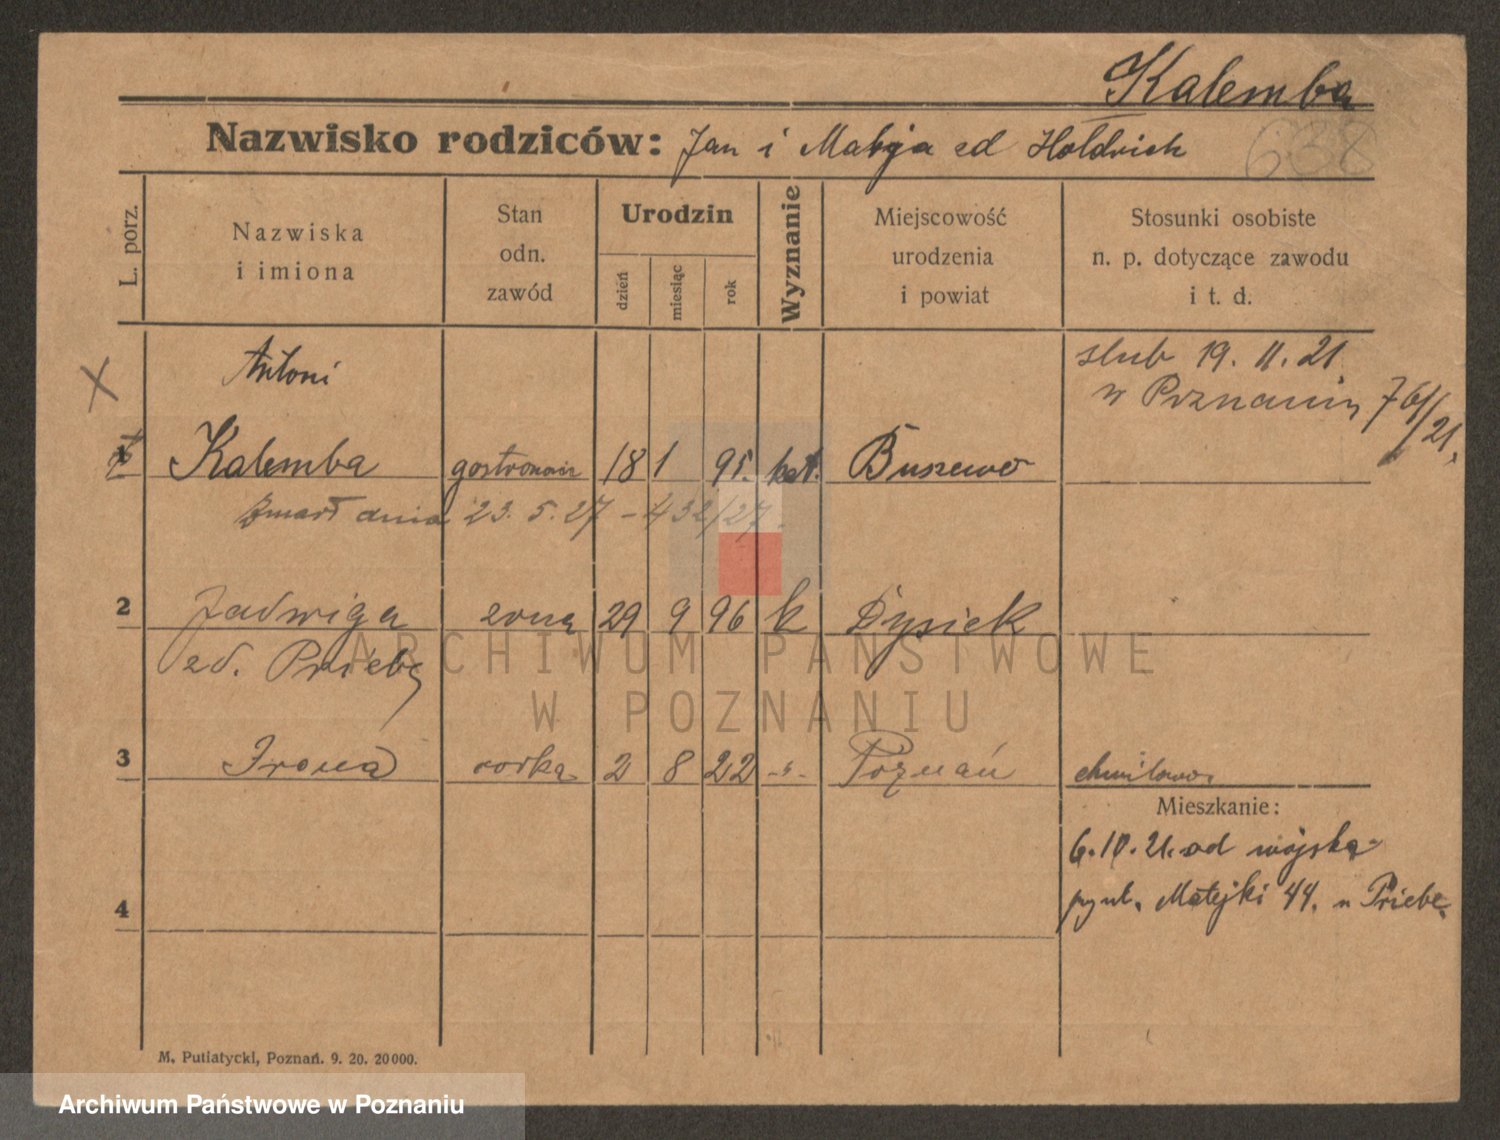 Kalemba
Nazwisko rodziców: Jan i Maryja zd Hołdrich
638
L. porz.
Nazwiska
i imiona
Stan
odn.
zawód
Urodzin
dzień
miesiąc
rok
Wyznanie
Miejscowość
urodzenia
i powiat
Stosunki osobiste
n. p. dotyczące zawodu
i t. d.
Antoni
slub 19. 11. 21
w Poznaniu 761/21.
Kalemba gastronom 18 1 95. kat. Buszewo
Zmarł dnia 23. 5. 27 - 432/27 -
2 Jadwiga zona 29 9 96 k Dysiek
zd. Priebe
3 Irena corka 2 8 22 -"- Poznań
Mieszkanie:
6.10.21. od wojska
4
Matejki 44. u Priebe.
M. Putiatycki, Poznań. 9. 20. 20000.
ARCHIWUM PAŃSTWOWE
W POZNANIU
Archiwum Państwowe w Poznaniu